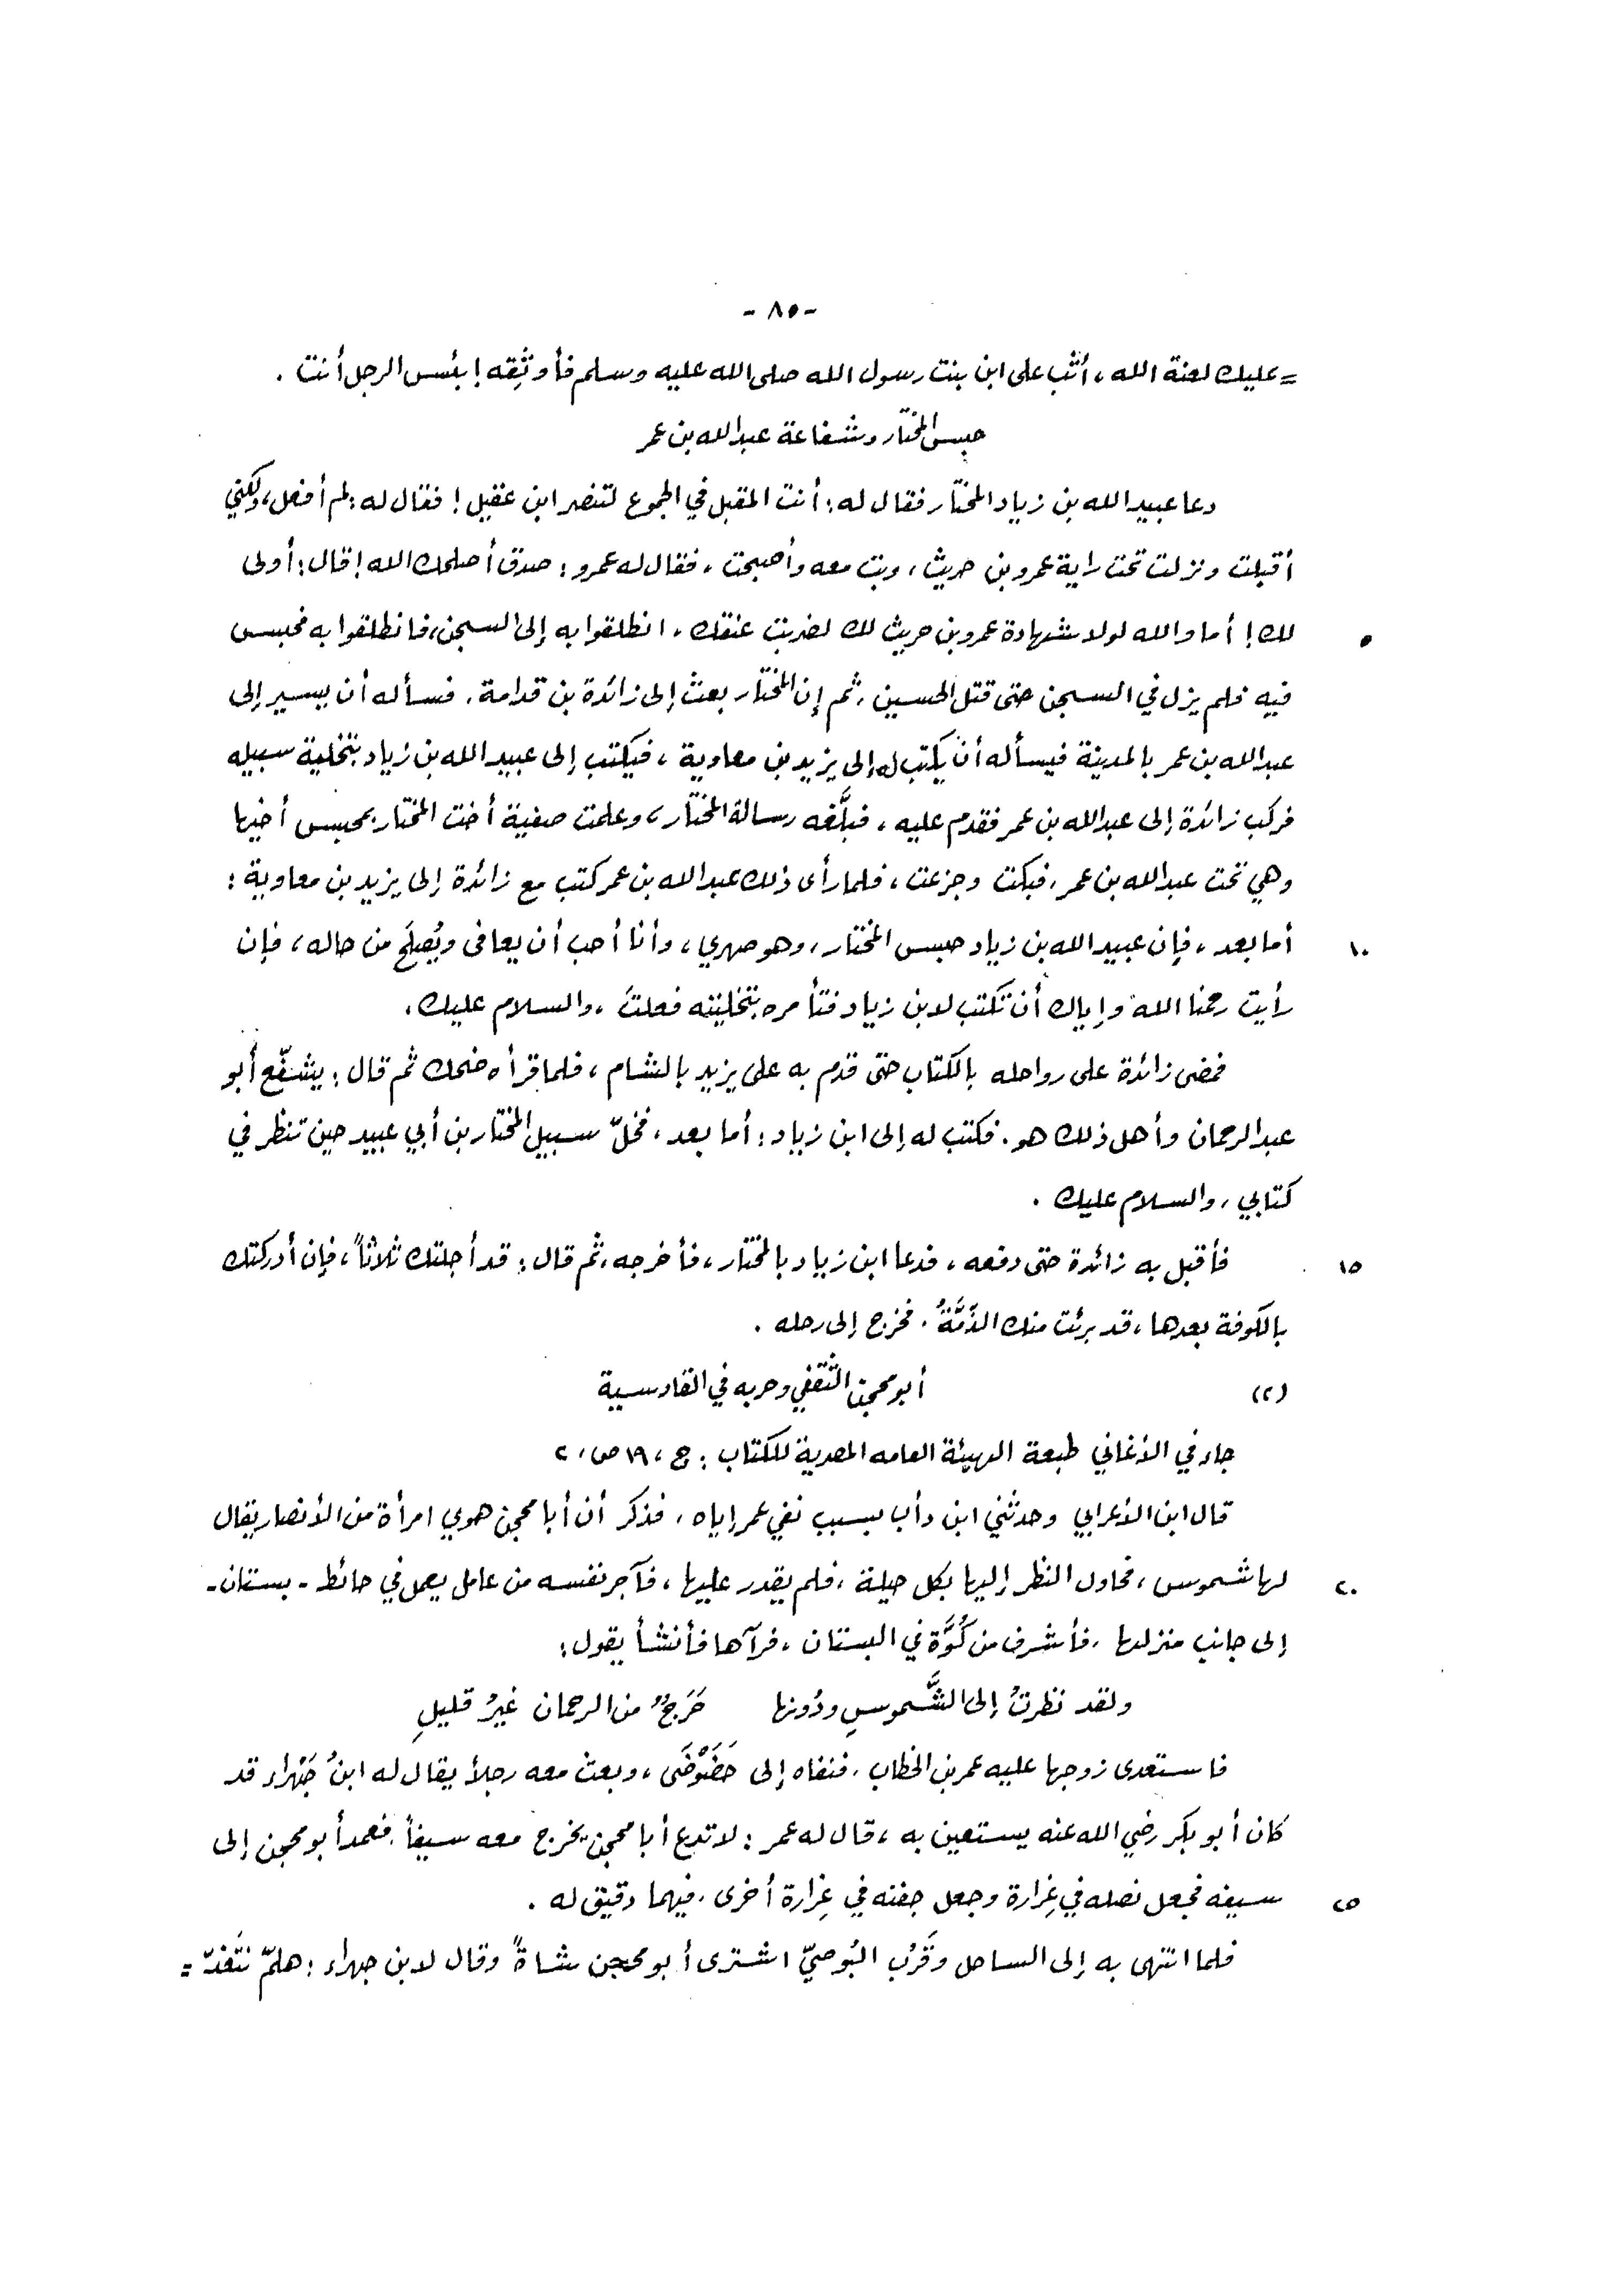 - ٨٥ -
= عليك لعنة الله ، أثب على ابن بنت رسول الله صلى الله عليه وسلم فأوثِقه ! بئس الرجل أنت .
حبس المختار وشفاعة عبدالله بن عمر
دعا عبيد الله بن زياد المختار فقال له : أنت المقبل في الجموع لتنصر ابن عقيل ! فقال له : لم أفعل ، ولكني
أقبلت ونزلت تحت راية عمرو بن حريث ، وبت معه وأصبحت ، فقال له عمرو : صدق أصلحك الله ! قال : أولى
٥ لك ! أما والله لولا شهادة عمرو بن حريث لك لضربت عنقك ، انطلقوا به إلى السجن ، فانطلقوا به فحبس
فيه فلم يزل في السجن حتى قتل الحسين ، ثم إن المختار بعث إلى زائدة بن قدامة ، فسأله أن يسير إلى
عبدالله بن عمر بالمدينة فيسأله أن يكتب له إلى يزيد بن معاوية ، فيكتب إلى عبيد الله بن زياد بتخلية سبيله
فركب زائدة إلى عبدالله بن عمر فقدم عليه ، فبلَّغه رسالة المختار ، وعلمت صفية أخت المختار بمحبس أخيها
وهي تحت عبدالله بن عمر ، فبكت وجزعت ، فلما رأى ذلك عبدالله بن عمر كتب مع زائدة إلى يزيد بن معاوية :
١٠ أما بعد ، فإن عبيد الله بن زياد حبس المختار ، وهو صهري ، وأنا أحب أن يعافى ويُصلَح من حاله ، فإن
رأيت رحمنا الله وإياك أن تكتب لابن زياد فتأمره بتخليته فعلتَ ، والسلام عليك .
فمضى زائدة على رواحله بالكتاب حتى قدم به على يزيد بالشام ، فلما قرأه ضحك ثم قال : يشفّع أبو
عبد الرحمان وأهل ذلك هو . فكتب له إلى ابن زياد : أما بعد ، فخلّ سبيل المختار بن أبي عبيد حين تنظر في
كتابي ، والسلام عليك .
١٥ فأقبل به زائدة حتى دفعه ، فدعا ابن زياد بالمختار ، فأخرجه ، ثم قال : قد أجلتك ثلاثاً ، فإن أدركتك
بالكوفة بعدها ، قد برئت منك الذِّمَّةُ . فخرج إلى رحله .
(٢) أبو محجن الثقفي وحربه في القادسية
جاء في الأغاني طبعة الهيئة العامه المصرية للكتاب : ج ، ١٩ ص ، ٢
قال ابن الأعرابي وحدثني ابن دأب بسبب نفي عمر إياه ، فذكر أن أبا محجن هوي امرأة من الأنصار يقال
٢٠ لها شموس ، فحاول النظر إليها بكل حيلة ، فلم يقدر عليها ، فآجر نفسه من عامل يعمل في حائط - بستان -
إلى جانب منزلها ، فأشرف من كُوَّة في البستان ، فرآها فأنشأ يقول :
ولقد نظرتُ إلى الشَّموسِ ودُونها حَرَجٌ من الرحمان غيرُ قليلِ
فاستعدى زوجها عليه عمر بن الخطاب ، فنفاه إلى حَضَوْضَى ، وبعث معه رجلاً يقال له ابنُ جَهْراء قد
كان أبو بكر رضي الله عنه يستعين به ، قال له عمر : لا تدع أبا محجن يخرج معه سيفاً . فعمد أبو محجن إلى
٢٥ سيفه فجعل نصله في غِرارة وجعل جفنه في غِرارة أخرى ، فيهما دقيق له .
فلما انتهى به إلى الساحل وقَرُب البُوصيّ اشترى أبو محجن شاةً وقال لابن جهراء : هلمّ نتَغدّ =